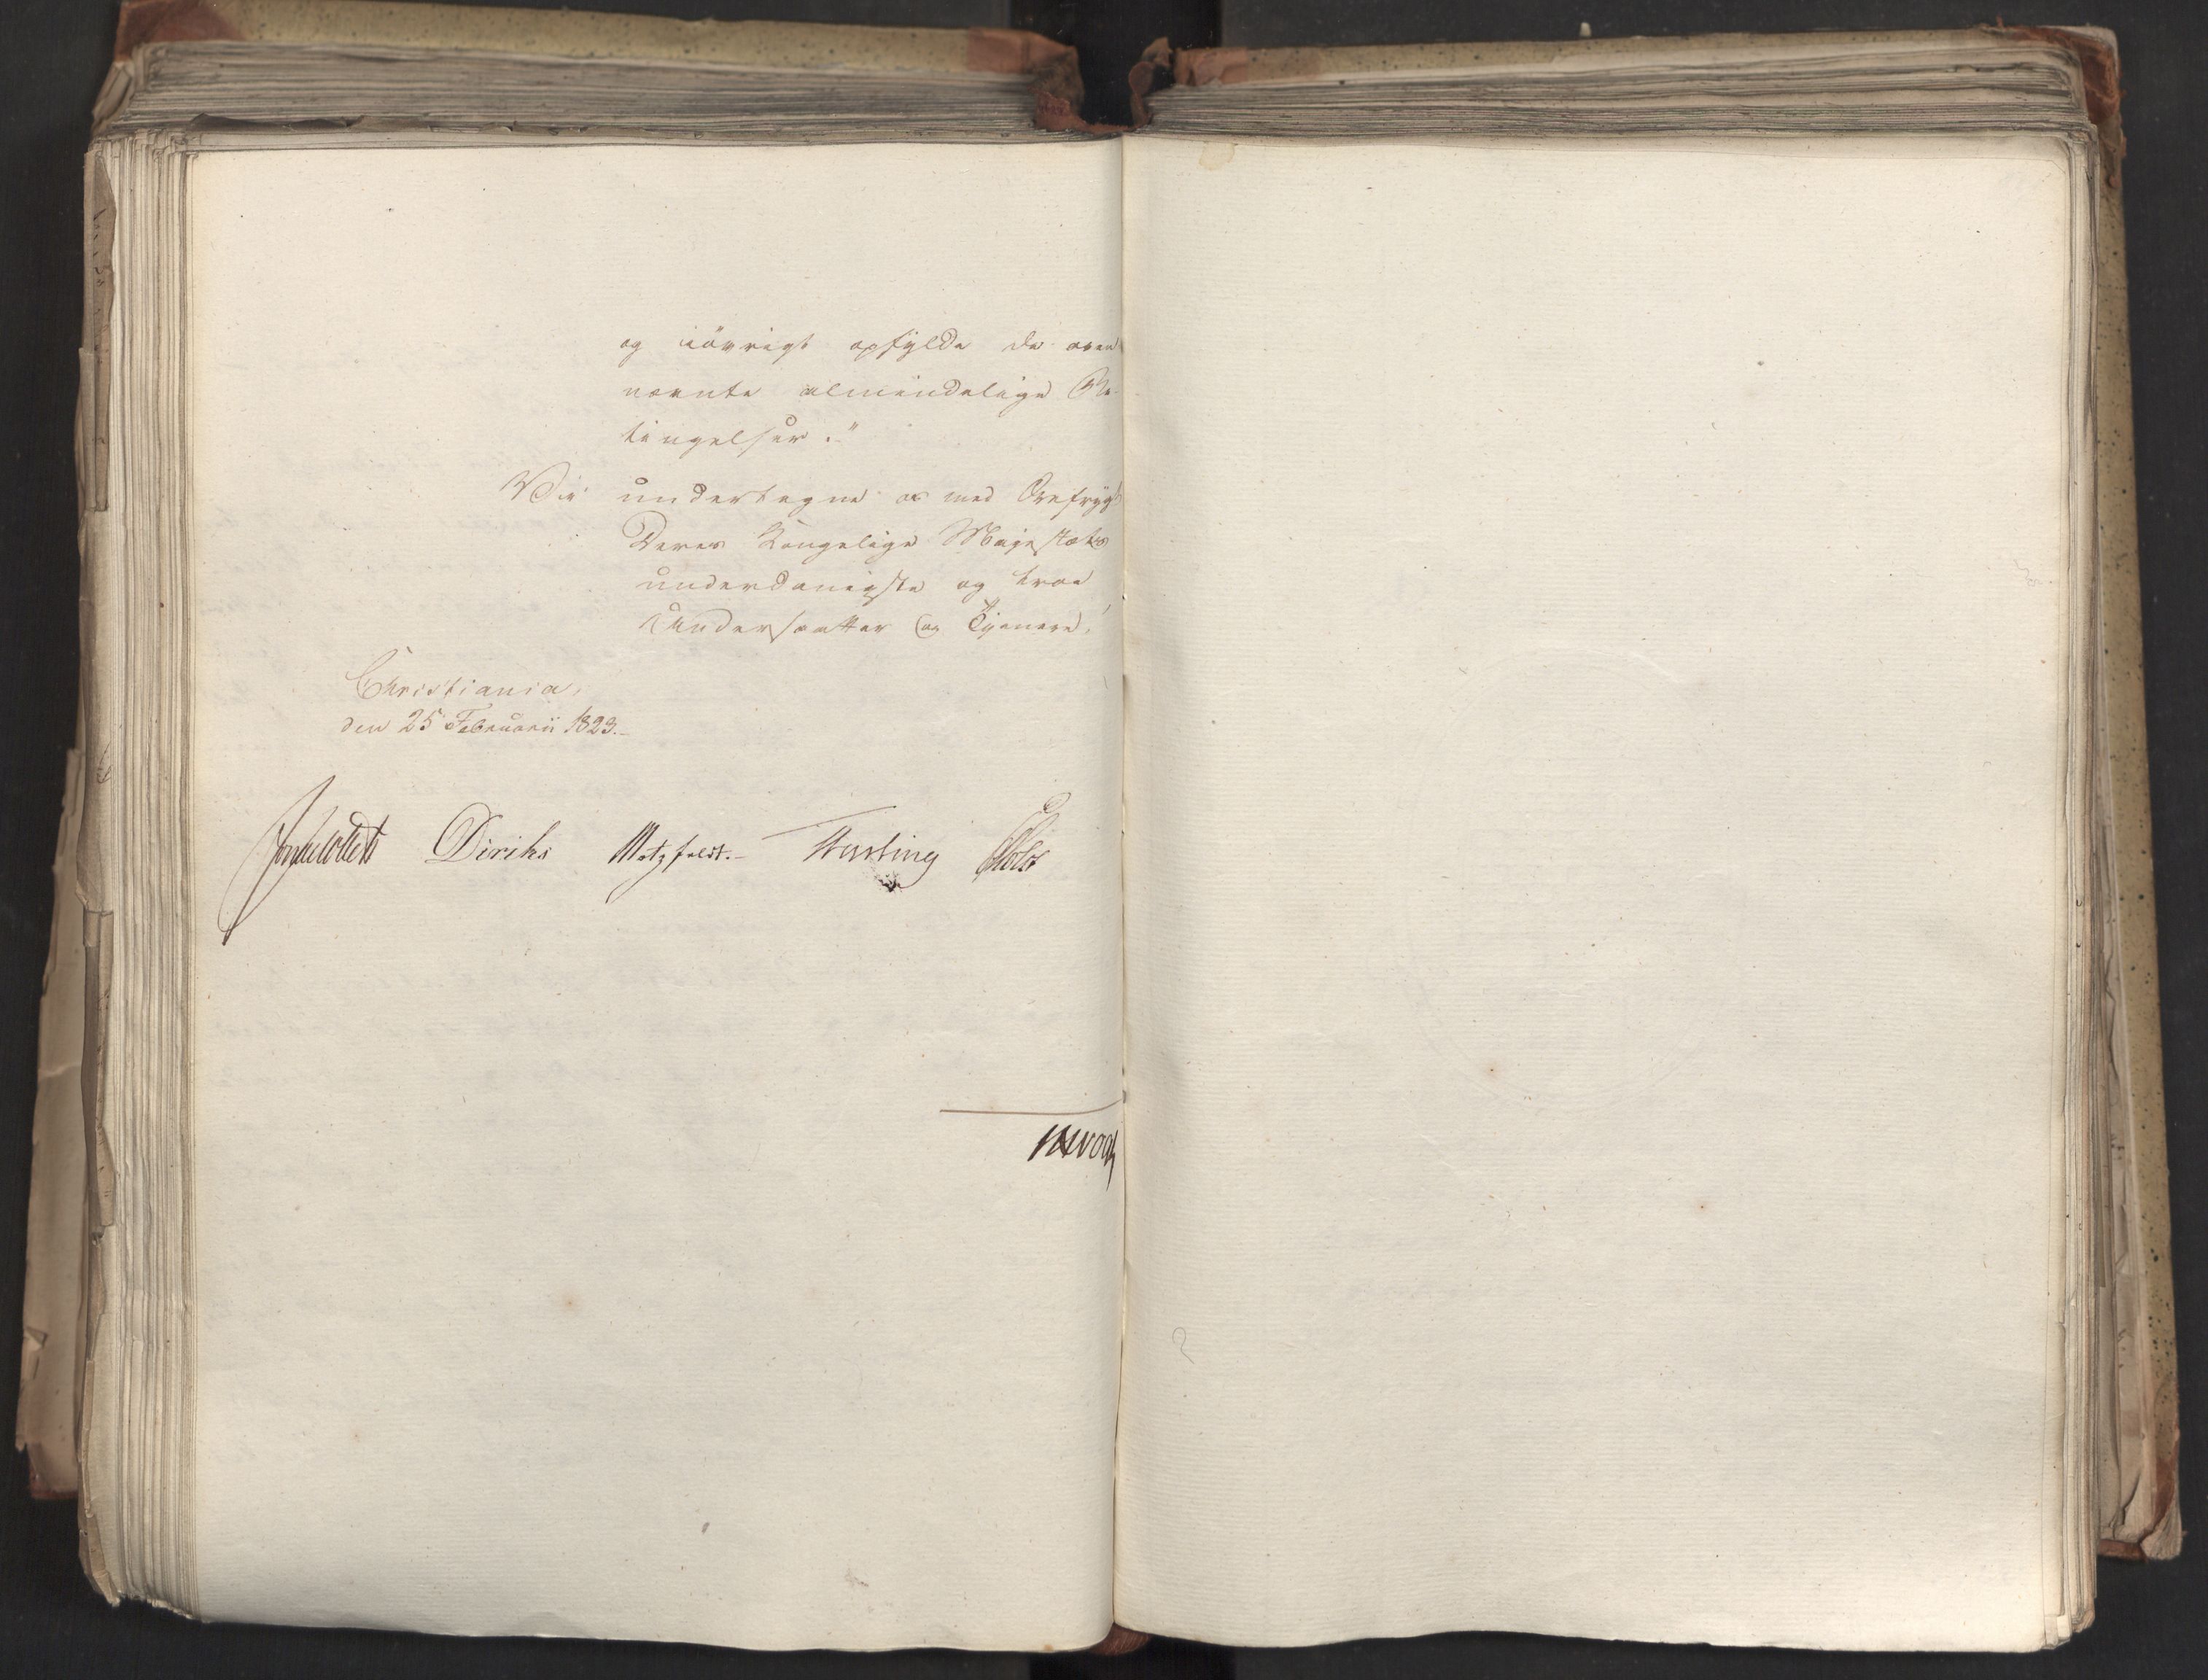 og iövrigt opfylde de oven
nævnte almindelige Be-
tingelser."
Vi undertegne os med Ærefrygt
Deres Kongelige Majestæts
underdanigste og troe
Undersaatter og Tjenere,
Christiania,
den 25 Februarii 1823.
Sommerhielm Diriks Motzfeldt. Fasting Holst
Vogt